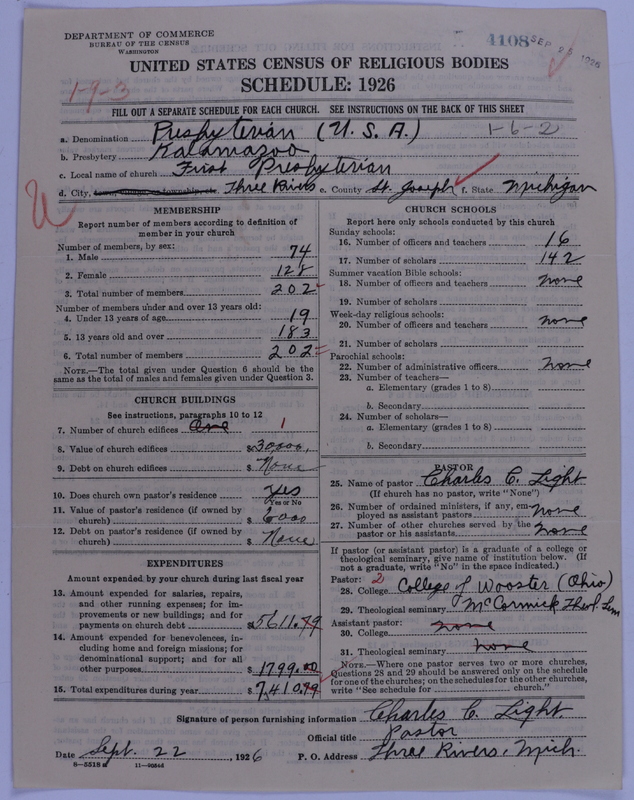 DEPARTMENT OF COMMERCE
BUREAU OF THE CENSUS
WASHINGTON
4108
SEP 25 1926
UNITED STATES CENSUS OF RELIGIOUS BODIES
SCHEDULE: 1926
1-9-3
FILL OUT A SEPARATE SCHEDULE FOR EACH CHURCH. SEE INSTRUCTIONS ON THE BACK OF THIS SHEET
a. Denomination Presbyterian (U.S.A.) 1-6-2
b. Presbytery Kalamazoo
c. Local name of church First Presbyterian
d. City, town, village, or township, etc. Three Rivers e. County St. Joseph f. State Michigan
MEMBERSHIP
Report number of members according to definition of
member in your church
Number of members, by sex:
1. Male 74
2. Female 128
3. Total number of members 202
Number of members under and over 13 years old:
4. Under 13 years of age 19
5. 13 years old and over 183
6. Total number of members 202
NOTE.—The total given under Question 6 should be
same as the total of males and females given under Question 3.
CHURCH BUILDINGS
See instructions, paragraphs 10 to 12
7. Number of church edifices One 1
8. Value of church edifices $30000.
9. Debt on church edifices $ None
10. Does church own pastor's residence Yes
Yes or No
11. Value of pastor's residence (if owned by
church) $ 6000
12. Debt on pastor's residence (if owned by
church) $ None
EXPENDITURES
Amount expended by your church during last fiscal year
13. Amount expended for salaries, repairs,
and other running expenses; for im-
provements or new buildings; and for
payments on church debt $5611.79
14. Amount expended for benevolences, in-
cluding home and foreign missions; for
denominational support; and for all
other purposes $1799.00
15. Total expenditures during year $7,410.79
CHURCH SCHOOLS
Report here only schools conducted by this church
Sunday schools:
16. Number of officers and teachers 16
17. Number of scholars 142
Summer vacation Bible schools:
18. Number of officers and teachers none
19. Number of scholars
Week-day religious schools:
20. Number of officers and teachers none
21. Number of scholars
Parochial schools:
22. Number of administrative officers none
23. Number of teachers—
a. Elementary (grades 1 to 8)
b. Secondary
24. Number of scholars—
a. Elementary (grades 1 to 8)
b. Secondary
PASTOR
25. Name of pastor Charles C. Light
(If church has no pastor, write "None")
26. Number of ordained ministers, if any, em-
ployed as assistant pastors none
27. Number of other churches served by the
pastor or his assistants none
If pastor (or assistant pastor) is a graduate of a college or
theological seminary, give name of institution below. (If
not a graduate, write "No" in the space indicated.)
Pastor: 2
28. College College of Wooster (Ohio)
29. Theological seminary McCormick Theol. Sem
Assistant pastor:
30. College none
31. Theological seminary none
NOTE.—Where one pastor serves two or more churches,
Questions 28 and 29 should be answered only on the schedule
for one of the churches; on the schedules for the other churches,
write "See schedule for church."
Signature of person furnishing information Charles C. Light
Official title Pastor
Date Sept. 22, 1926 P. O. Address Three Rivers, Mich.
8—5518